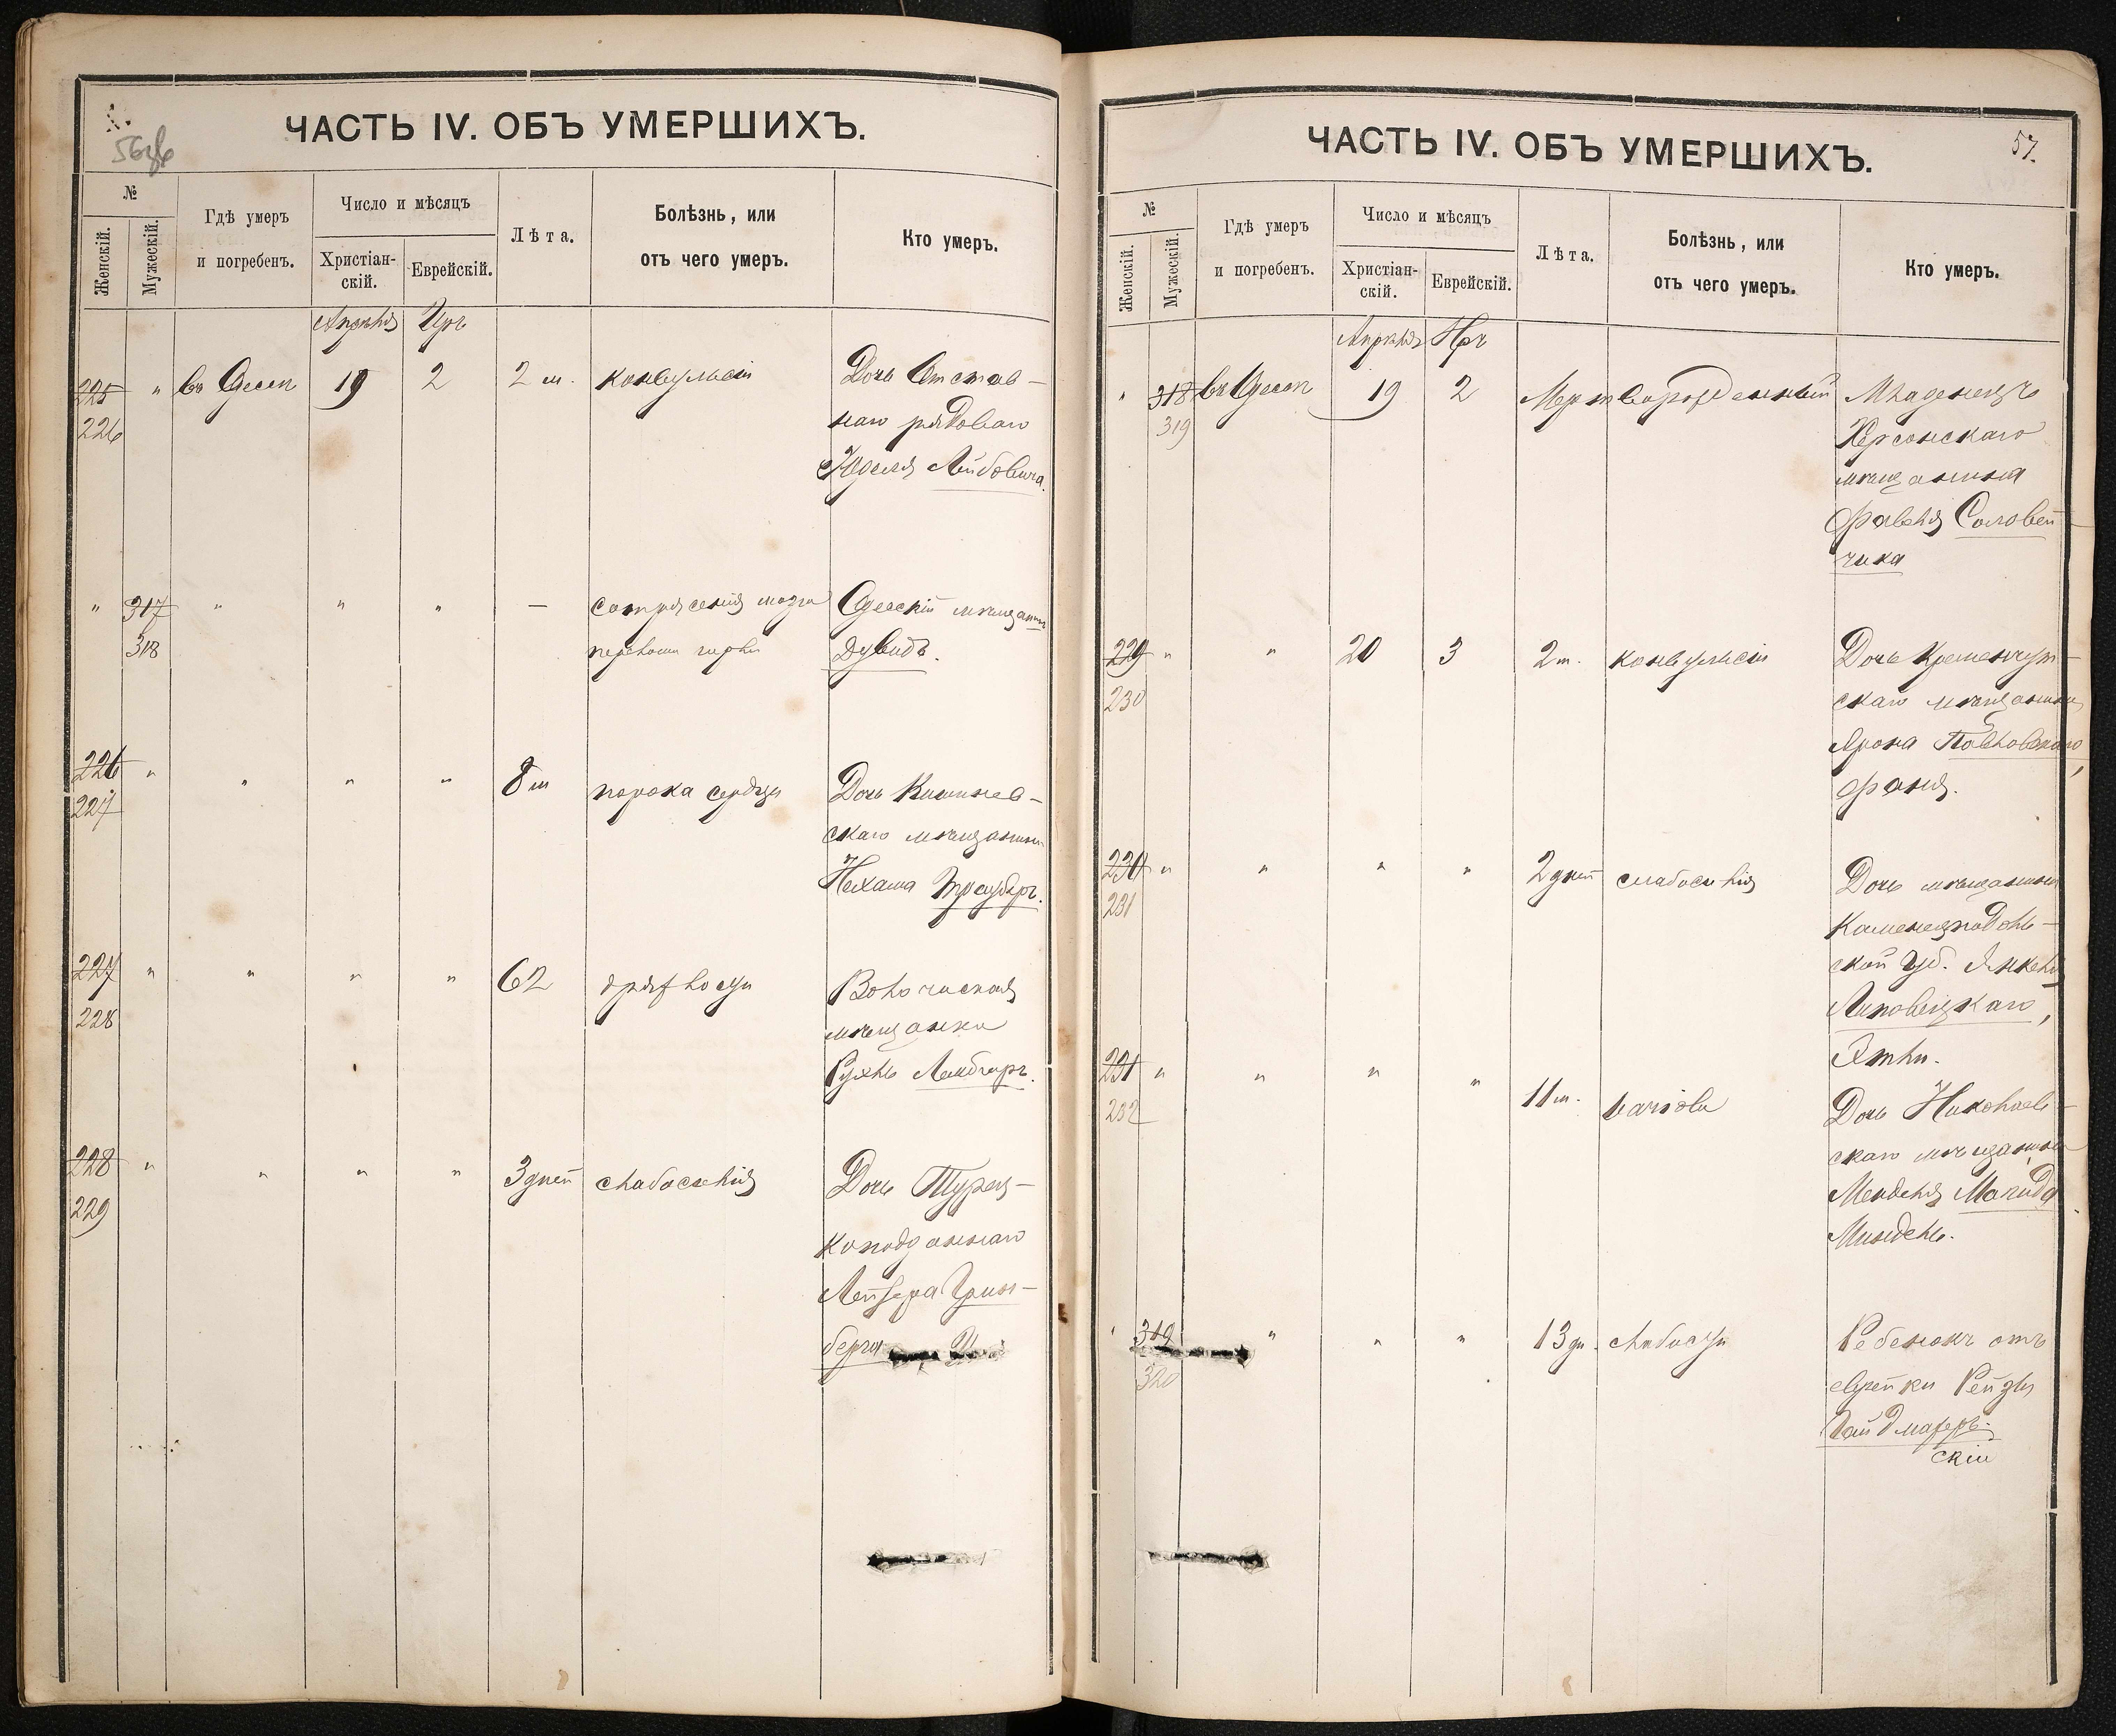 56об
ЧАСТЬ IV. ОБЪ УМЕРШИХЪ.
№
Женскій.
Мужескій.
Гдѣ умеръ
и погребенъ.
Число и мѣсяцъ
Христіан-
скій.
Еврейскій.
Лѣта.
Болѣзнь, или
отъ чего умеръ.
Кто умеръ.
Апрѣля Иръ
225 " въ Одессѣ 19 2 2 м. конвульсіи Дочь Отстав-
226 наго рядоваго
Юделя Лейбовича.
" 317 " " " — сотрясенія мозга Одесскій мѣщанинъ
318 Дувидъ.
226 " " " " 8 м порока сердца Дочь Кишинев-
227 скаго мѣщанина
Нехама Трауберъ.
227 " " " " 62 дряхлости Волочиская
228 мѣщанка
Рухль Ландгаръ.
228 " " " " 3 дней слабосилія Дочь Турец-
229 коподданнаго
Лейзера Грин-
берга
57.
ЧАСТЬ IV. ОБЪ УМЕРШИХЪ.
№
Женскій.
Мужескій.
Гдѣ умеръ
и погребенъ.
Число и мѣсяцъ
Христіан-
скій.
Еврейскій.
Лѣта.
Болѣзнь, или
отъ чего умеръ.
Кто умеръ.
Апрѣля Иръ
" 318 въ Одессѣ 19 2 Мертворожденный Младенецъ
319 Херсонскаго
мѣщанина
Фавеля Соловей-
чика
229 " " 20 3 2 м. конвульсіи Дочь Кременчуг-
230 скаго мѣщанина
Арона Павловскаго,
Фаня.
230 " " " " 2 дней слабосилія Дочь мѣщанина
231 Каменецподоль-
ской Губ. Янкеля
Липовецкаго,
Этли.
231 " " " " 11 м. Дочь Николаев-
232 скаго мѣщанина
Менделя Магида
Миндель.
" 319 " " " 13 дн. слабости Ребенокъ отъ
320 еврейки Рейзи
Гайдмахеръ-
скій